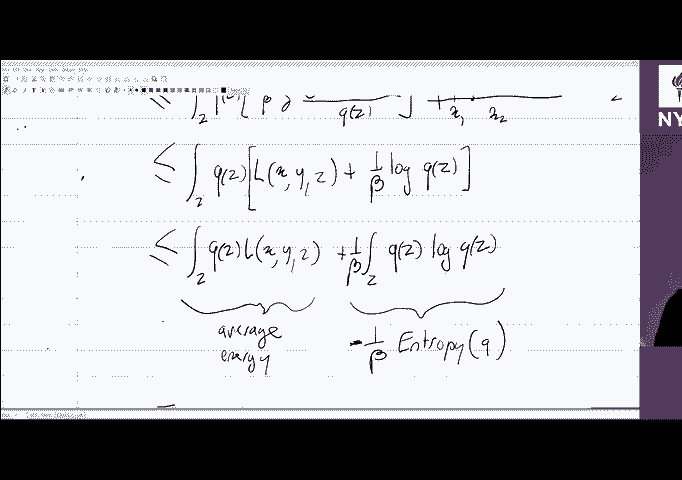 q(z) x₁ x₂
≤ ∫_z q(z)[L(x,y,z) + 1/β log q(z)]
≤ ∫_z q(z)L(x,y,z) + 1/β ∫_z q(z) log q(z)
average energy
-1/β Entropy(q)
NY